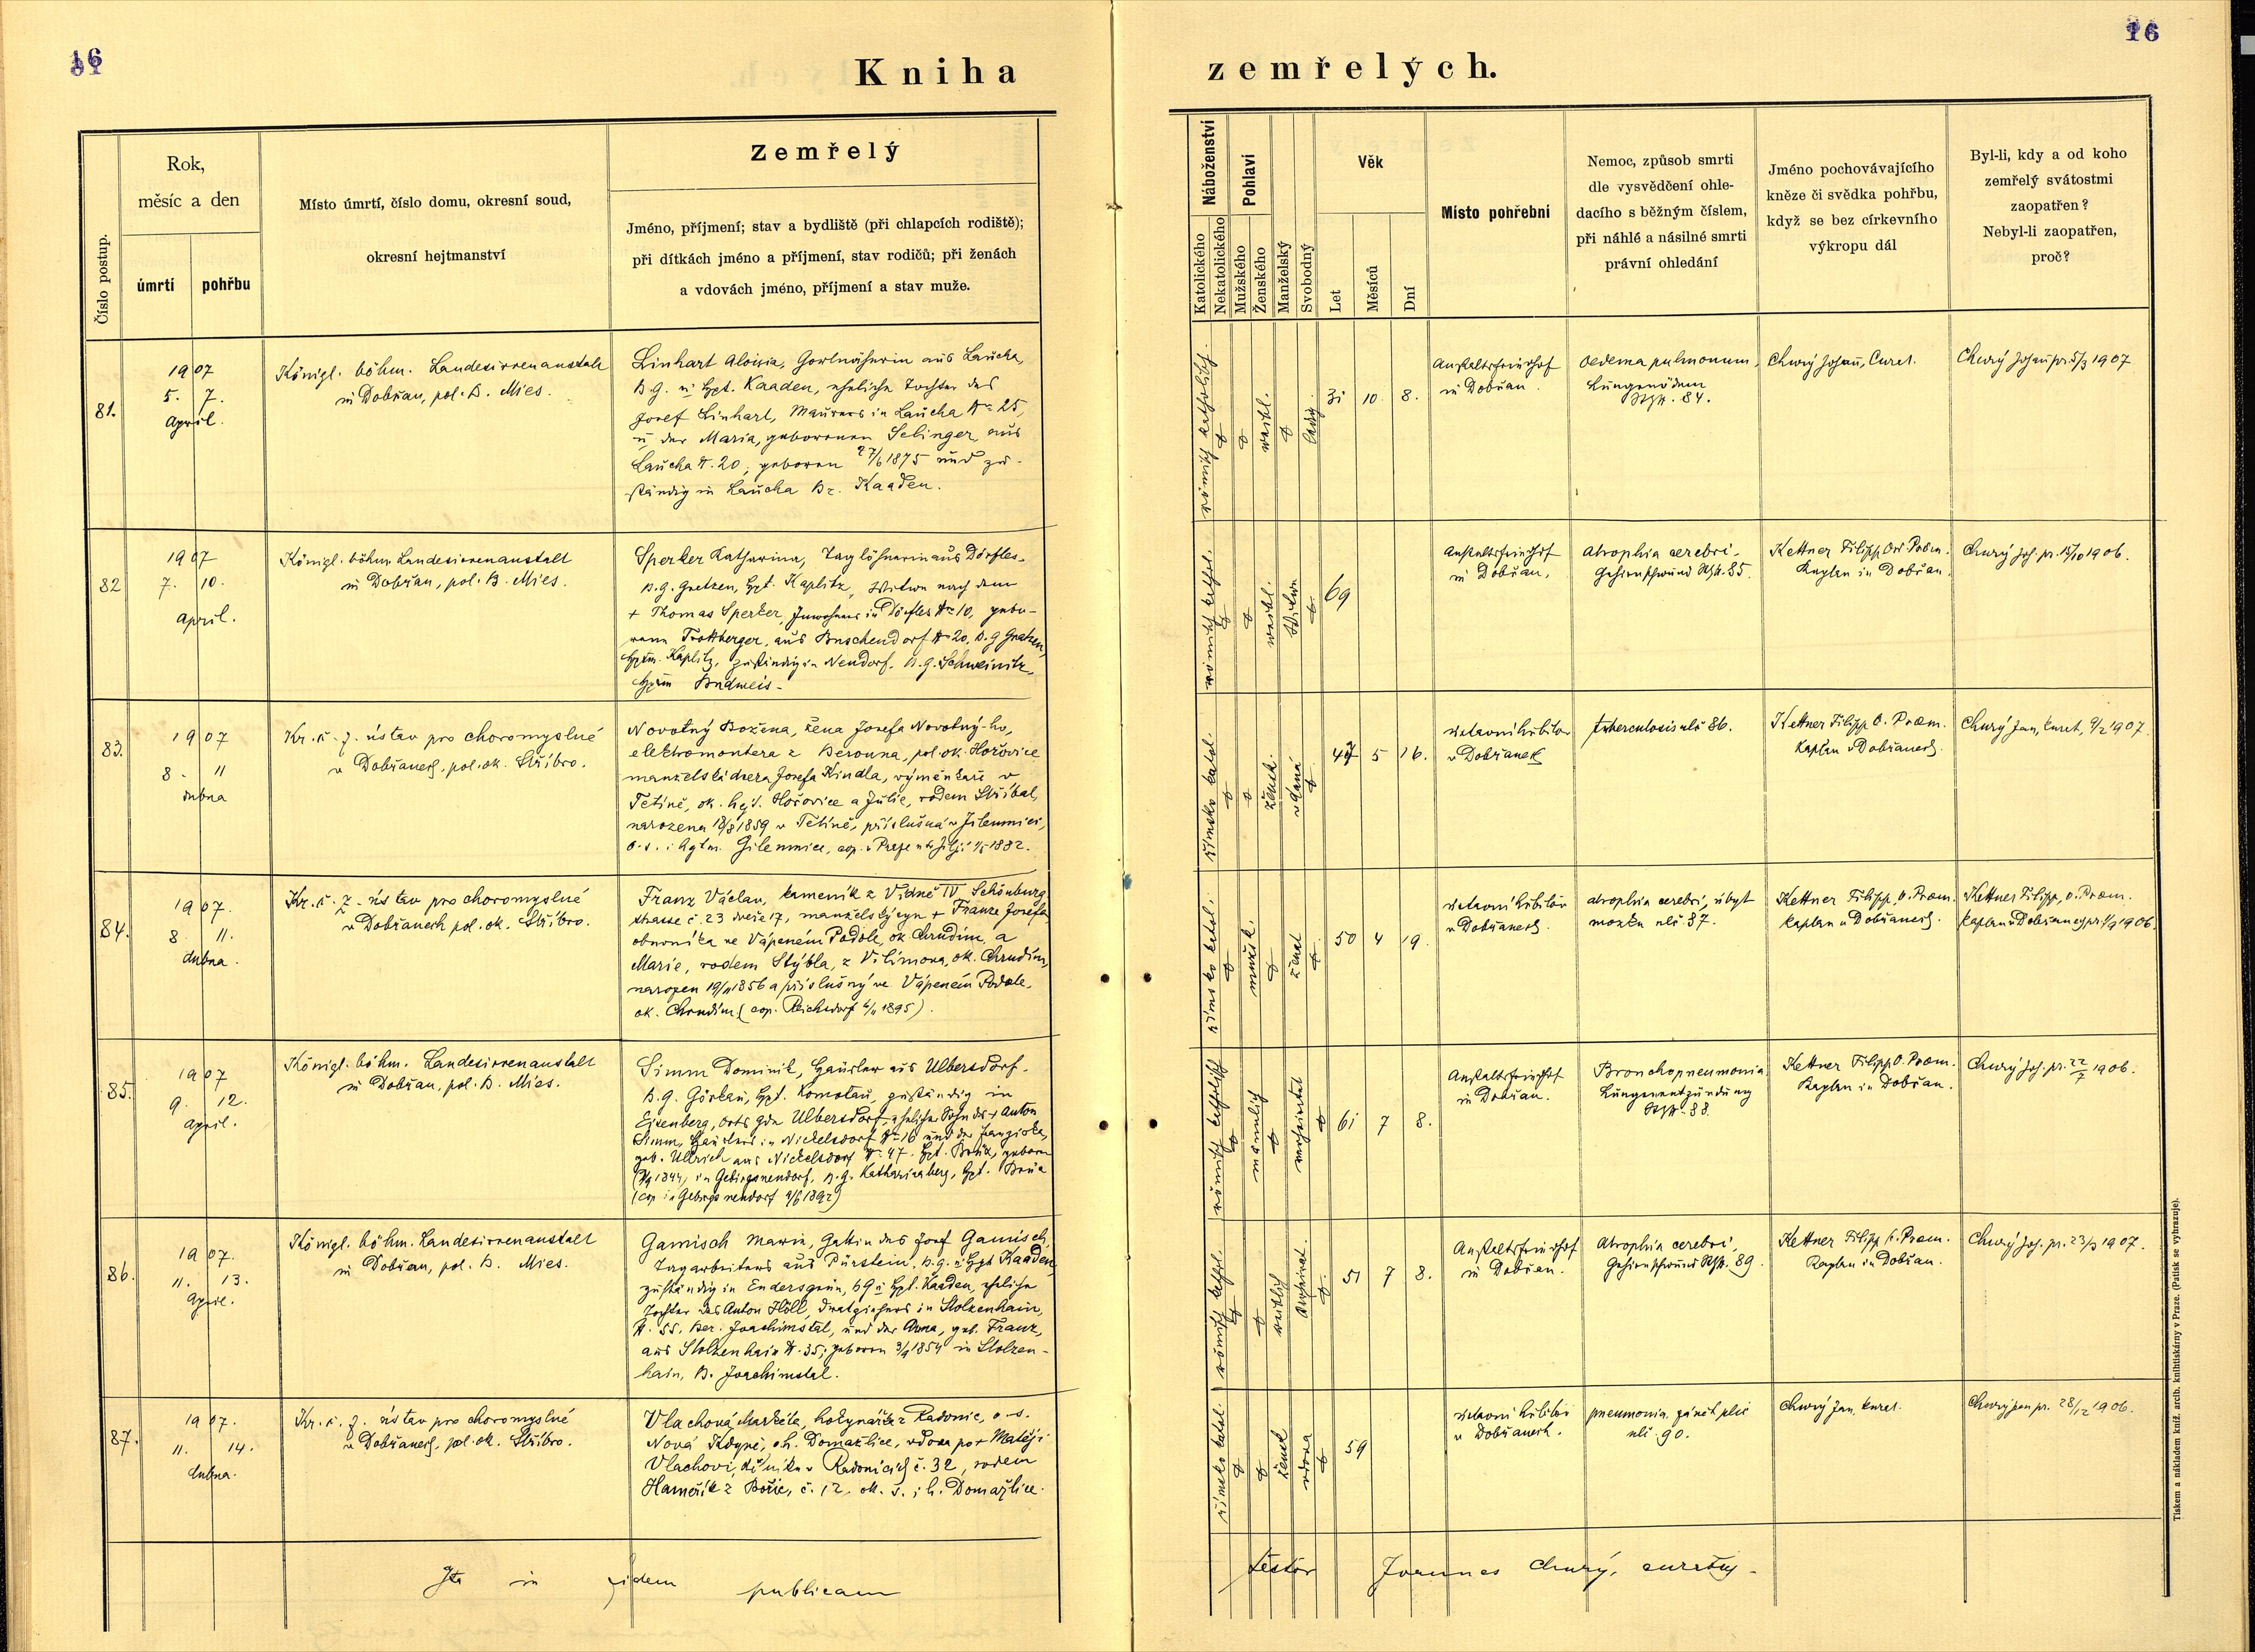 16
16
Kniha
zemřelých.
Číslo postup.
Rok,
měsíc a den
úmrtí
pohřbu
Místo úmrtí, číslo domu, okresní soud,
okresní hejtmanství
Zemřelý
Jméno, příjmení; stav a bydliště (při chlapcích rodiště);
při dítkách jméno a příjmení, stav rodičů; při ženách
a vdovách jméno, příjmení a stav muže.
Náboženství
Katolického
Nekatolického
Pohlaví
Mužského
Ženského
Manželský
Svobodný
Věk
Let
Měsíců
Dní
Místo pohřební
Nemoc, způsob smrti
dle vysvědčení ohle-
dacího s běžným číslem,
při náhlé a násilné smrti
právní ohledání
Jméno pochovávajícího
kněze či svědka pohřbu,
když se bez církevního
výkropu dál
Byl-li, kdy a od koho
zemřelý svátostmi
zaopatřen?
Nebyl-li zaopatřen,
proč?
81.
1907
5. 7.
April.
Königl. böhm. Landesirrenanstalt
in Dobřan, pol. B. Mies.
Linhart Aloisia, aus Laucha,
B.g. u Hpt. Kaaden, eheliche Tochter des
Josef Linhart, Maurers in Laucha N= 25,
u der Maria, geborenen Selinger aus
Laucha N. 20; geboren 27/6 1875 und zu-
ständig in Laucha Bz. Kaaden.
römisch katholisch.
weibl.
ledig.
31 10 8.
Anstaltsfriedhof
in Dobřan
Oedema pulmonum,
Lungenödem
84.
Chwrý Johann, Curat.
Chwrý Johann pr. 5/3 1907
82
1907
7. 10.
April.
Königl. böhm. Landesirrenanstalt
in Dobřan, pol. B. Mies.
Sperker Katharina, Taglöhnerin aus Dörfles-
B.g. Gratzen, Hpt. Kaplitz, Witwe nach dem
+ Thomas Sperker, Inwohners in Dörfles N= 10, gebo-
rene Trottberger, aus Buschendorf N= 20, B.g Gratzen,
Hptm. Kaplitz, zuständig in Neudorf, B.g. Schweinitz,
Hptm Budweis-
römisch kathol.
weibl.
Witwe
69
Anstaltsfriedhof
in Dobřan,
atrophia cerebri-
Gehirnschwund 85.
Kettner Filipp Ord. Præm.
Kaplan in Dobřan.
Chwrý Joh. pr. 15/10 1906.
83.
1907
8. 11
dubna
Kr. č. z. ústav pro choromyslné
v Dobřanech, pol. ok. Stříbro.
Novotný Božena, žena Josefa Novotný-ho,
elektromontera z Berouna, pol. ok. Hořovice
manželská dcera Josefa Kindla, výměnkaře v
Tetíně, ok. hejt. Hořovice a Julie, rodem Stříbal,
narozena 18/8 1859 v Tetíně, příslušná v Jilemnici,
o. s. i hgtm. Jilemnice, cop. v Praze u sv. Jiljí 1882.
římsko katol.
žensk.
vdaná
47 5 16.
ústavní hřbitov
v Dobřanech
tuberculosis uli 86.
Kettner Filipp O. Præm.
Kaplan v Dobřanech.
Chwrý Jan, kurat, 9/2 1907.
84.
1907.
8. 11.
dubna.
Kr. č. z. ústav pro choromyslné
v Dobřanech pol. ok. Stříbro.
Franz Václav, kameník z Vídně IV Schönburg
strasse č. 23 dveře 17, manželský syn + Franze Josefa
obuvníka ve Vápeném Podole, ok. Chrudim, a
Marie, rodem Stýbla, z Vilímova, ok. Chrudim,
narozen 19/11 1856 a příslušný ve Vápeném Podole,
ok. Chrudim (cop. Reichsdorf 6/11 1895).
římsko katol.
mužsk.
ženat
50 4 19.
ústavní hřbitov
v Dobřanech.
atrophia cerebri, úbyt
mozku uli 87.
Kettner Filipp, O. Præm.
kaplan v Dobřanech.
Kettner Filipp, O. Præm.
kaplan v Dobřanech pr. 1/9 1906.
85.
1907
9. 12.
April.
Königl. böhm. Landesirrenanstalt
in Dobřan, pol. B. Mies.
Simm Dominik, Häusler aus Ulbersdorf.
B.g. Görkau, Hpt. Komotau, zuständig in
Eisenberg, Orts gde Ulbersdorf, ehelicher Sohn des + Anton
Simm, Häuslers in Nickelsdorf N= 16 und der Franziska,
geb. Ullrich aus Nickelsdorf N= 47. Hpt. Brüx, geboren
1844, in Gebirgsneudorf, B.g. Katharinaberg, Hpt. Brüx
(cop in Gebirgsneudorf 1892)
römisch katholisch
männlich
verheiratet
61 7 8.
Anstaltsfriedhof
in Dobřan.
Bronchopneumonia
Lungenentzündung
88.
Kettner Filipp O. Præm.
Kaplan in Dobřan.
Chwrý Joh. pr. 22/7 1906.
86.
1907.
11. 13.
April.
Königl. böhm. Landesirrenanstalt
in Dobřan, pol. B. Mies.
Gamisch Maria, Gattin des Josef Gamisch,
Tagarbeiters aus Pürstein, B.g. u Hpt Kaaden,
zuständig in Endersgrün, bg u Hpt. Kaaden, eheliche
Tochter des Anton Höll, Dratziehers in Stolzenhain,
N. 55. Bez. Joachimstal, und der Anna, geb. Franz,
aus Stolzenhain N. 35; geboren 3/9 1854 in Stolzen-
hain, B. Joachimstal.
römisch kathol.
weiblich
verheirat.
51 7 8.
Anstaltsfriedhof
in Dobřan.
Atrophia cerebri,
Gehirnschwund 89.
Kettner Filipp O. Præm.
Kaplan in Dobřan.
Chwrý Joh. pr. 23/3 1907.
87.
1907.
11. 14.
dubna.
Kr. č. z. ústav pro choromyslné
v Dobřanech, pol. ok. Stříbro.
Vlachová Markéta, hokynářka z Radonic, o. s.
Nová Kdyně, o.h. Domažlice, vdova po + Matěji
Vlachovi, dělníku v Radonicích č. 32, rodem
Hameřík z Bořic, č. 12. ok. s. i h. Domažlice.
římsko katol.
žensk
vdova
59
ústavní hřbitov
v Dobřanech.
pneumonia zánět plic
uli 90.
Chwrý Jan, kurat.
Chwrý Jan pr. 28/12 1906.
Ita in fidem publicam
testor Joannes Chwrý, curatus.
Tiskem a nákladem knížt. arcib. knihtiskárny v Praze. (Patisk se vyhrazuje).